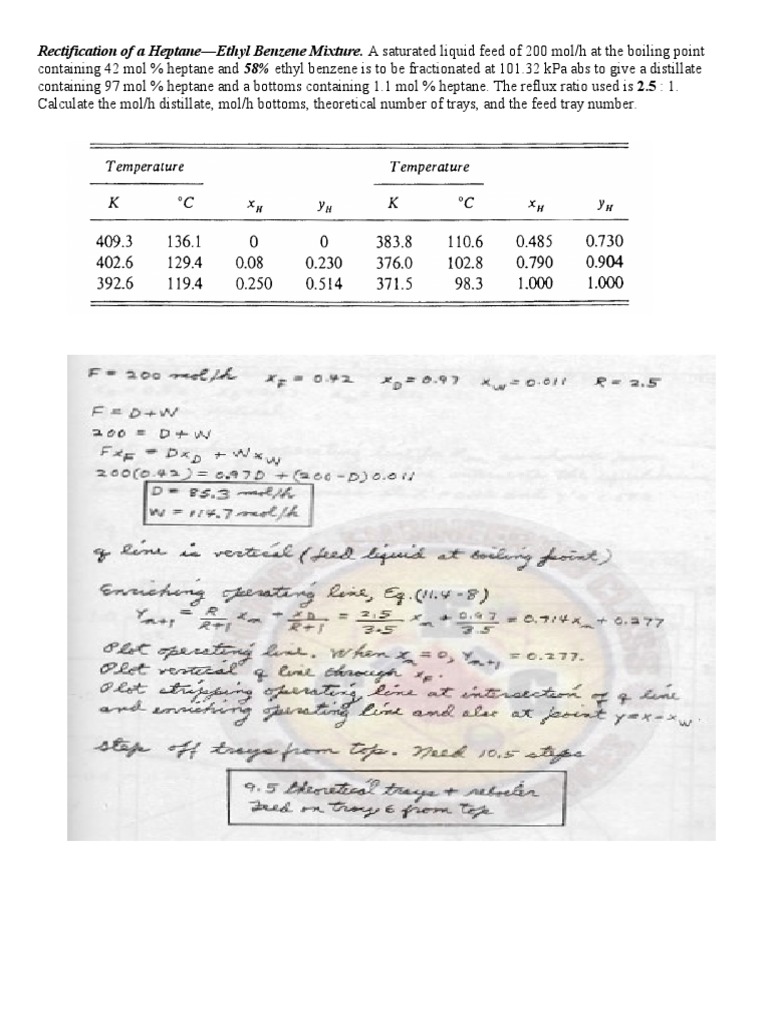 Rectification of a Heptane—Ethyl Benzene Mixture. A saturated liquid feed of 200 mol/h at the boiling point
containing 42 mol % heptane and 58% ethyl benzene is to be fractionated at 101.32 kPa abs to give a distillate
containing 97 mol % heptane and a bottoms containing 1.1 mol % heptane. The reflux ratio used is 2.5 : 1.
Calculate the mol/h distillate, mol/h bottoms, theoretical number of trays, and the feed tray number.
Temperature Temperature
K °C x_H y_H K °C x_H y_H
409.3 136.1 0 0 383.8 110.6 0.485 0.730
402.6 129.4 0.08 0.230 376.0 102.8 0.790 0.904
392.6 119.4 0.250 0.514 371.5 98.3 1.000 1.000
F = 200 mol/h x_F = 0.42 x_D = 0.97 x_W = 0.011 R = 2.5
F = D + W
200 = D + W
F x_F = D x_D + W x_W
200(0.42) = 0.97D + (200 - D) 0.011
D = 85.3 mol/h
W = 114.7 mol/h
q line is vertical (feed liquid at boiling point)
Enriching operating line, Eq. (11.4-8)
y_n+1 = R/R+1 x_n + x_D/R+1 = 2.5/3.5 x_n + 0.97/3.5 = 0.714 x_n + 0.277
Plot operating line. When x_n = 0, y_n+1 = 0.277.
Plot vertical q line through x_F.
Plot stripping operating line at intersection of q line
and enriching operating line and also at point y = x = x_W.
Step off trays from top. Need 10.5 steps
9.5 theoretical trays + reboiler
Feed on tray 6 from top